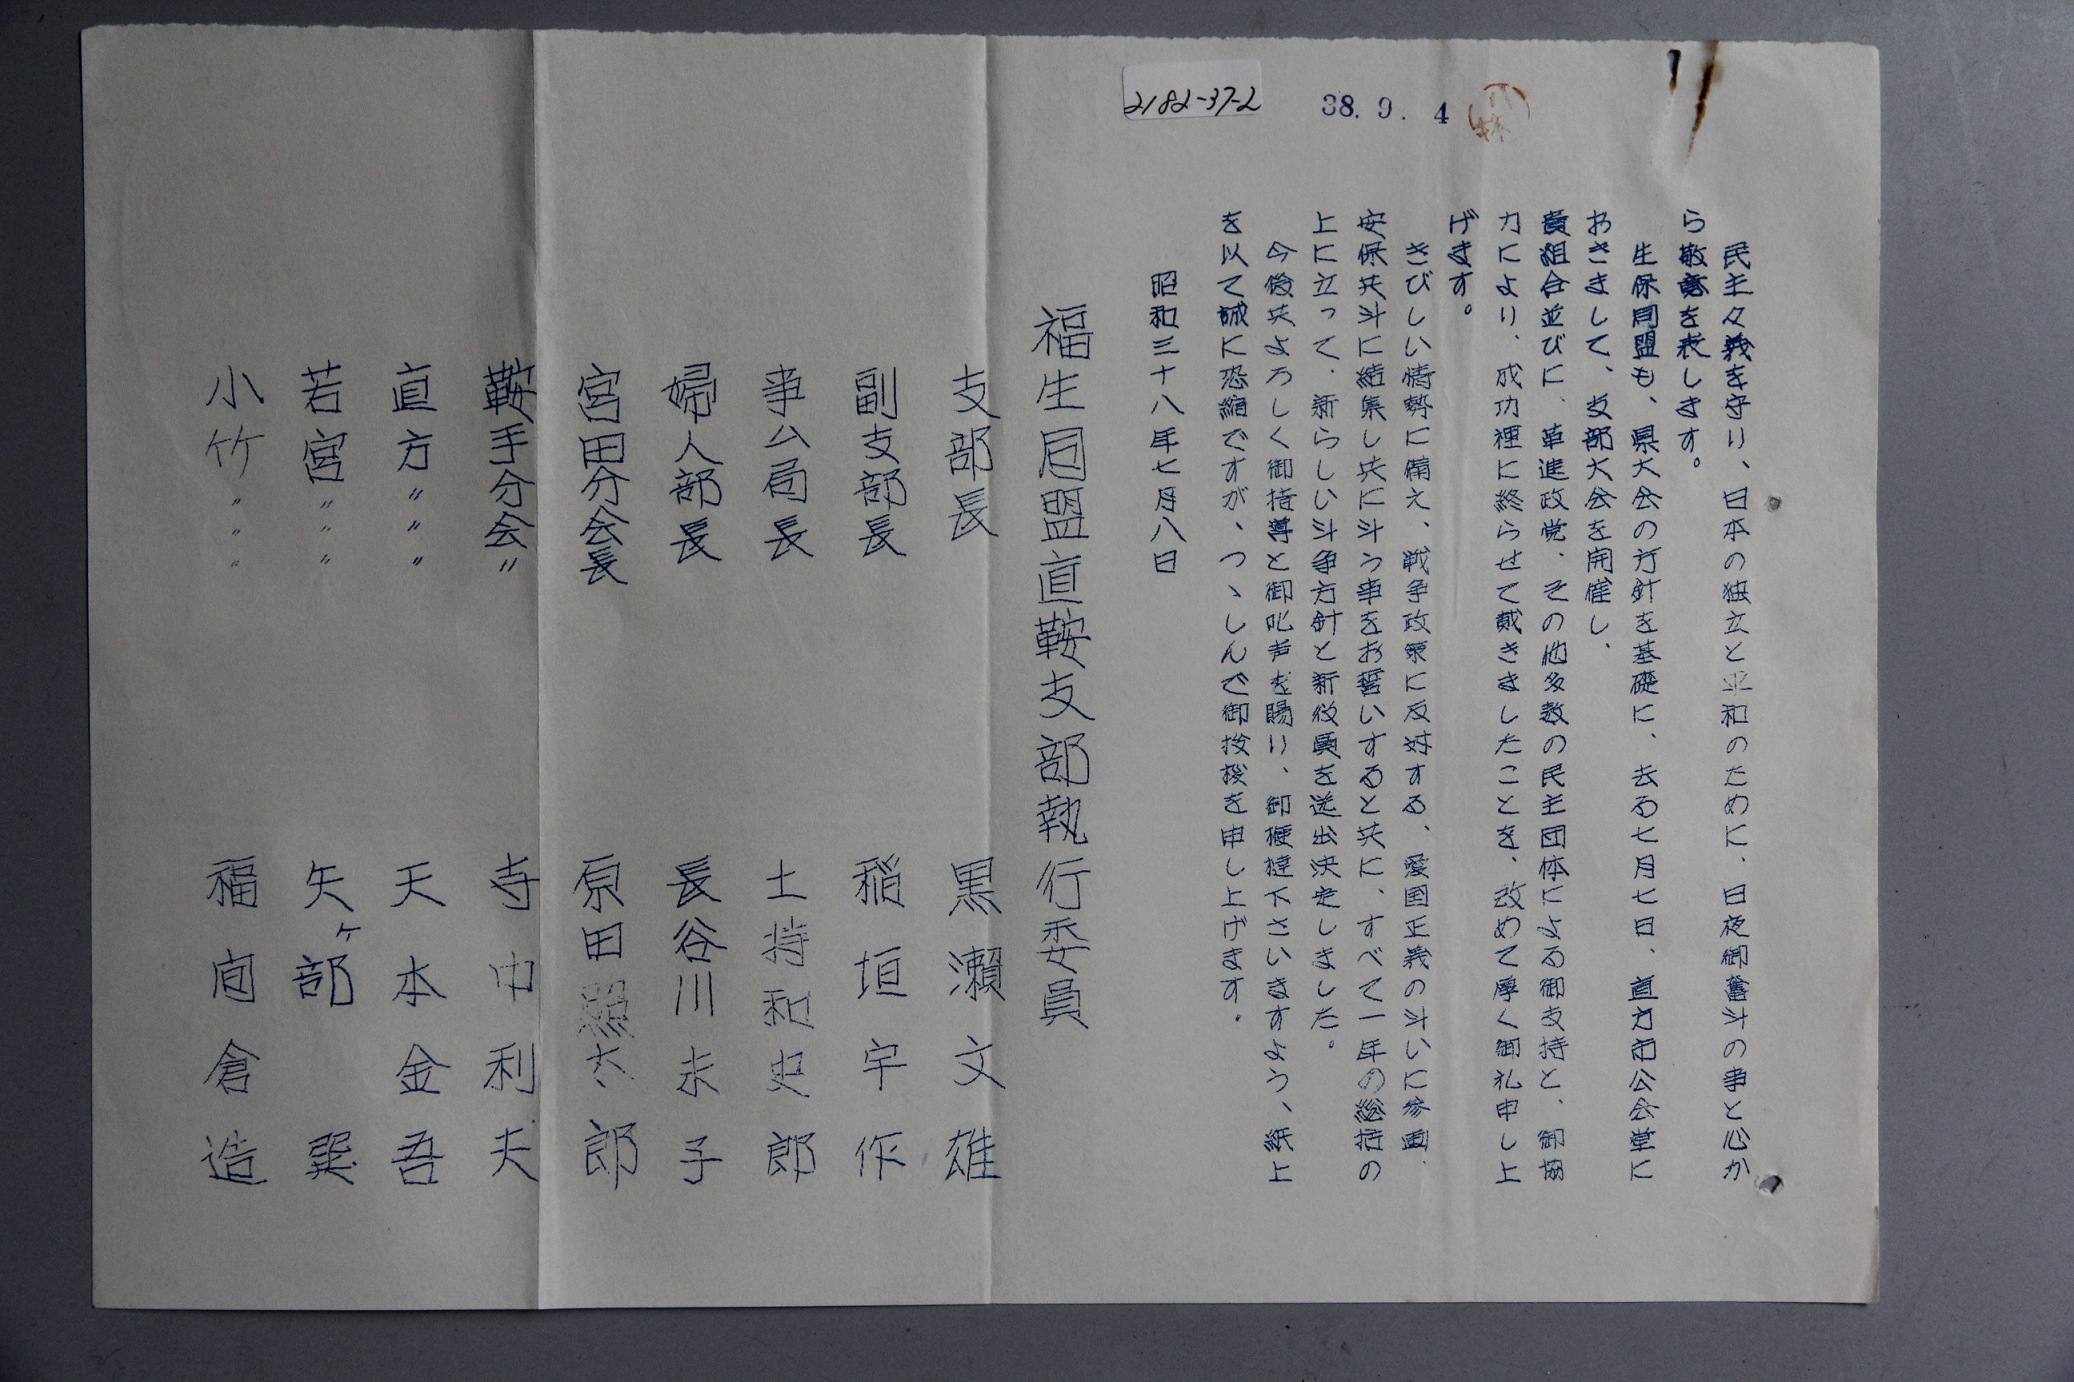 2182-37-2
38.9.4
小林
民主々義を守り、日本の独立と平和のために、日夜御奮斗の事と心か
ら敬意を表します。
生保同盟も、県大会の方針を基礎に、去る七月七日、直方市公会堂に
おきまして、支部大会を開催し、
貴組合並びに、革進政党、その他多数の民主団体による御支持と、御協
力により、成功裡に終らせて戴きましたことを、改めて厚く御礼申し上
げます。
きびしい情勢に備え、戦争政策に反対する、愛国正義の斗いに参画、
安保共斗に結集し共に斗う事をお誓いすると共に、すべて一年の総括の
上に立って、新らしい斗争方針と新役員を選出決定しました。
今後共よろしく御指導と御叱声を賜り、御鞭撻下さいますよう、紙上
を以て誠に恐縮ですが、つゝしんで御挨拶を申し上げます。
昭和三十八年七月八日
福生同盟直鞍支部執行委員
支部長 黒瀬文雄
副支部長 稲垣宇作
事ム局長 土持和史郎
婦人部長 長谷川末子
宮田分会長 原田照太郎
鞍手分会〃 寺中利夫
直方〃〃 天本金吾
若宮〃〃〃 矢ヶ部巽
小竹〃〃〃 福 倉造